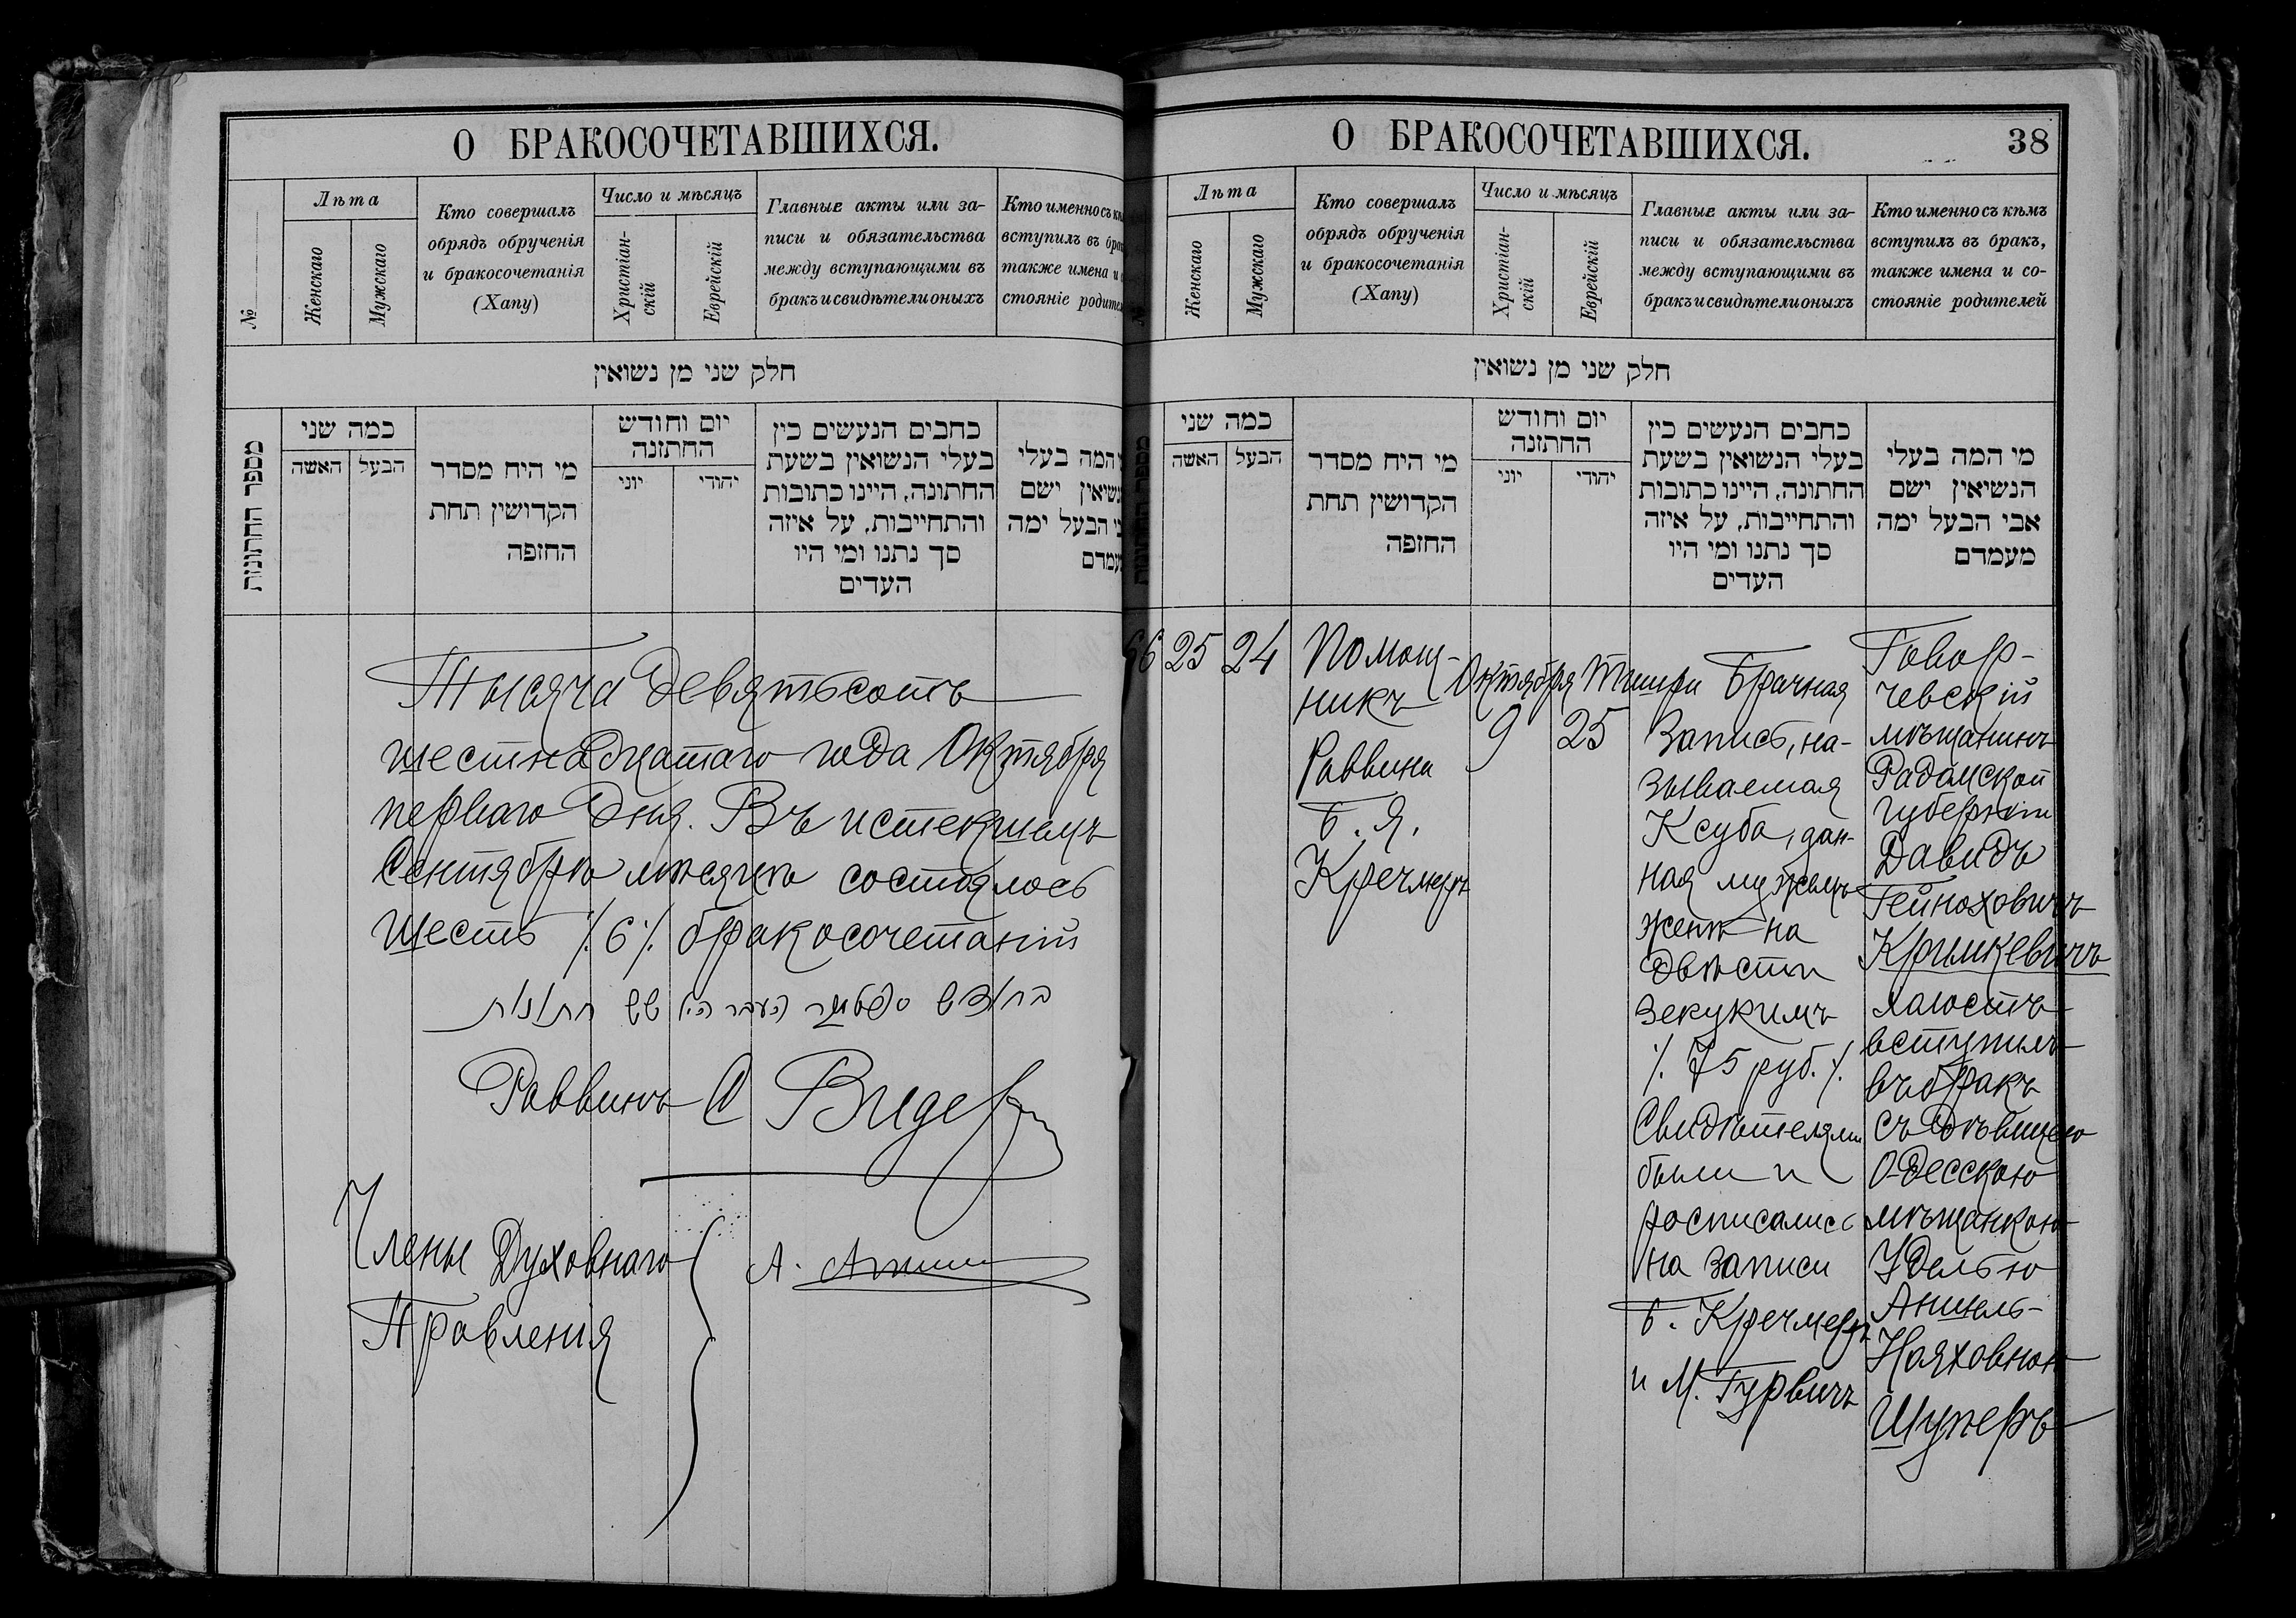 О БРАКОСОЧЕТАВШИХСЯ.
№
Лѣта
Женскаго
Мужскаго
Кто совершалъ
обрядъ обрученія
и бракосочетанія
(Хапу)
Число и мѣсяцъ
Христіан-
скій
Еврейскій
Главные акты или за-
писи и обязательства
между вступающими въ
бракъ и свидѣтели оныхъ
Кто именно съ
вступилъ въ
также имена и
стояніе
חלק שני מן נשואין
מספר החתונות
כמה שני
האשה
הבעל
מי היח מסדר
הקדושין תחת
החופה
יום וחודש
החתונה
יוני
יהודי
כתבים הנעשים בין
בעלי הנשואין בשעת
החתונה, היינו כתובות
והתחייבות, על איזה
סך נתנו ומי היו
העדים
המה בעלי
ישם
הבעל ימה
Тысяча девятьсотъ
шестнадцатаго года Октября
перваго дня. Въ истекшемъ
Сентябрѣ мѣсяцѣ состоялось
шесть ·/. 6 ·/. бракосочетаній
בחודש סעפטעמבר העבר היו שש חתונות
Раввинъ
Члены Духовнаго
Правленія
А.
О БРАКОСОЧЕТАВШИХСЯ.
38
Лѣта
Женскаго
Мужскаго
Кто совершалъ
обрядъ обрученія
и бракосочетанія
(Хапу)
Число и мѣсяцъ
Христіан-
скій
Еврейскій
Главные акты или за-
писи и обязательства
между вступающими въ
бракъ и свидѣтели оныхъ
Кто именно съ кѣмъ
вступилъ въ бракъ,
также имена и со-
стояніе родителей
חלק שני מן נשואין
כמה שני
האשה
הבעל
מי היח מסדר
הקדושין תחת
החופה
יום וחודש
החתונה
יוני
יהודי
כתבים הנעשים בין
בעלי הנשואין בשעת
החתונה, היינו כתובות
והתחייבות, על איזה
סך נתנו ומי היו
העדים
מי המה בעלי
הנשיאין ישם
אבי הבעל ימה
מעמדם
25
24
Помощ-
никъ
Раввина
Б. Я.
Кречмеръ
Октября
9
Тишри
25
Брачная
Запись, на-
зываемая
Ксуба, дан-
ная мужемъ
женѣ на
двѣсти
зекукимъ
·/. 75 руб. ·/.
Свидѣтелями
были и
росписались
на записи
Б. Кречмеръ
и М. Гурвичъ
Говор-
чевскій
мѣщанинъ
Радомской
губерніи
Давидъ
Гейноховичъ
Кримкевичъ
холостъ
вступилъ
въ бракъ
съ дѣвицею
Одесскою
мѣщанкою
Уделью
Аншель-
Нояховною
Шуперъ